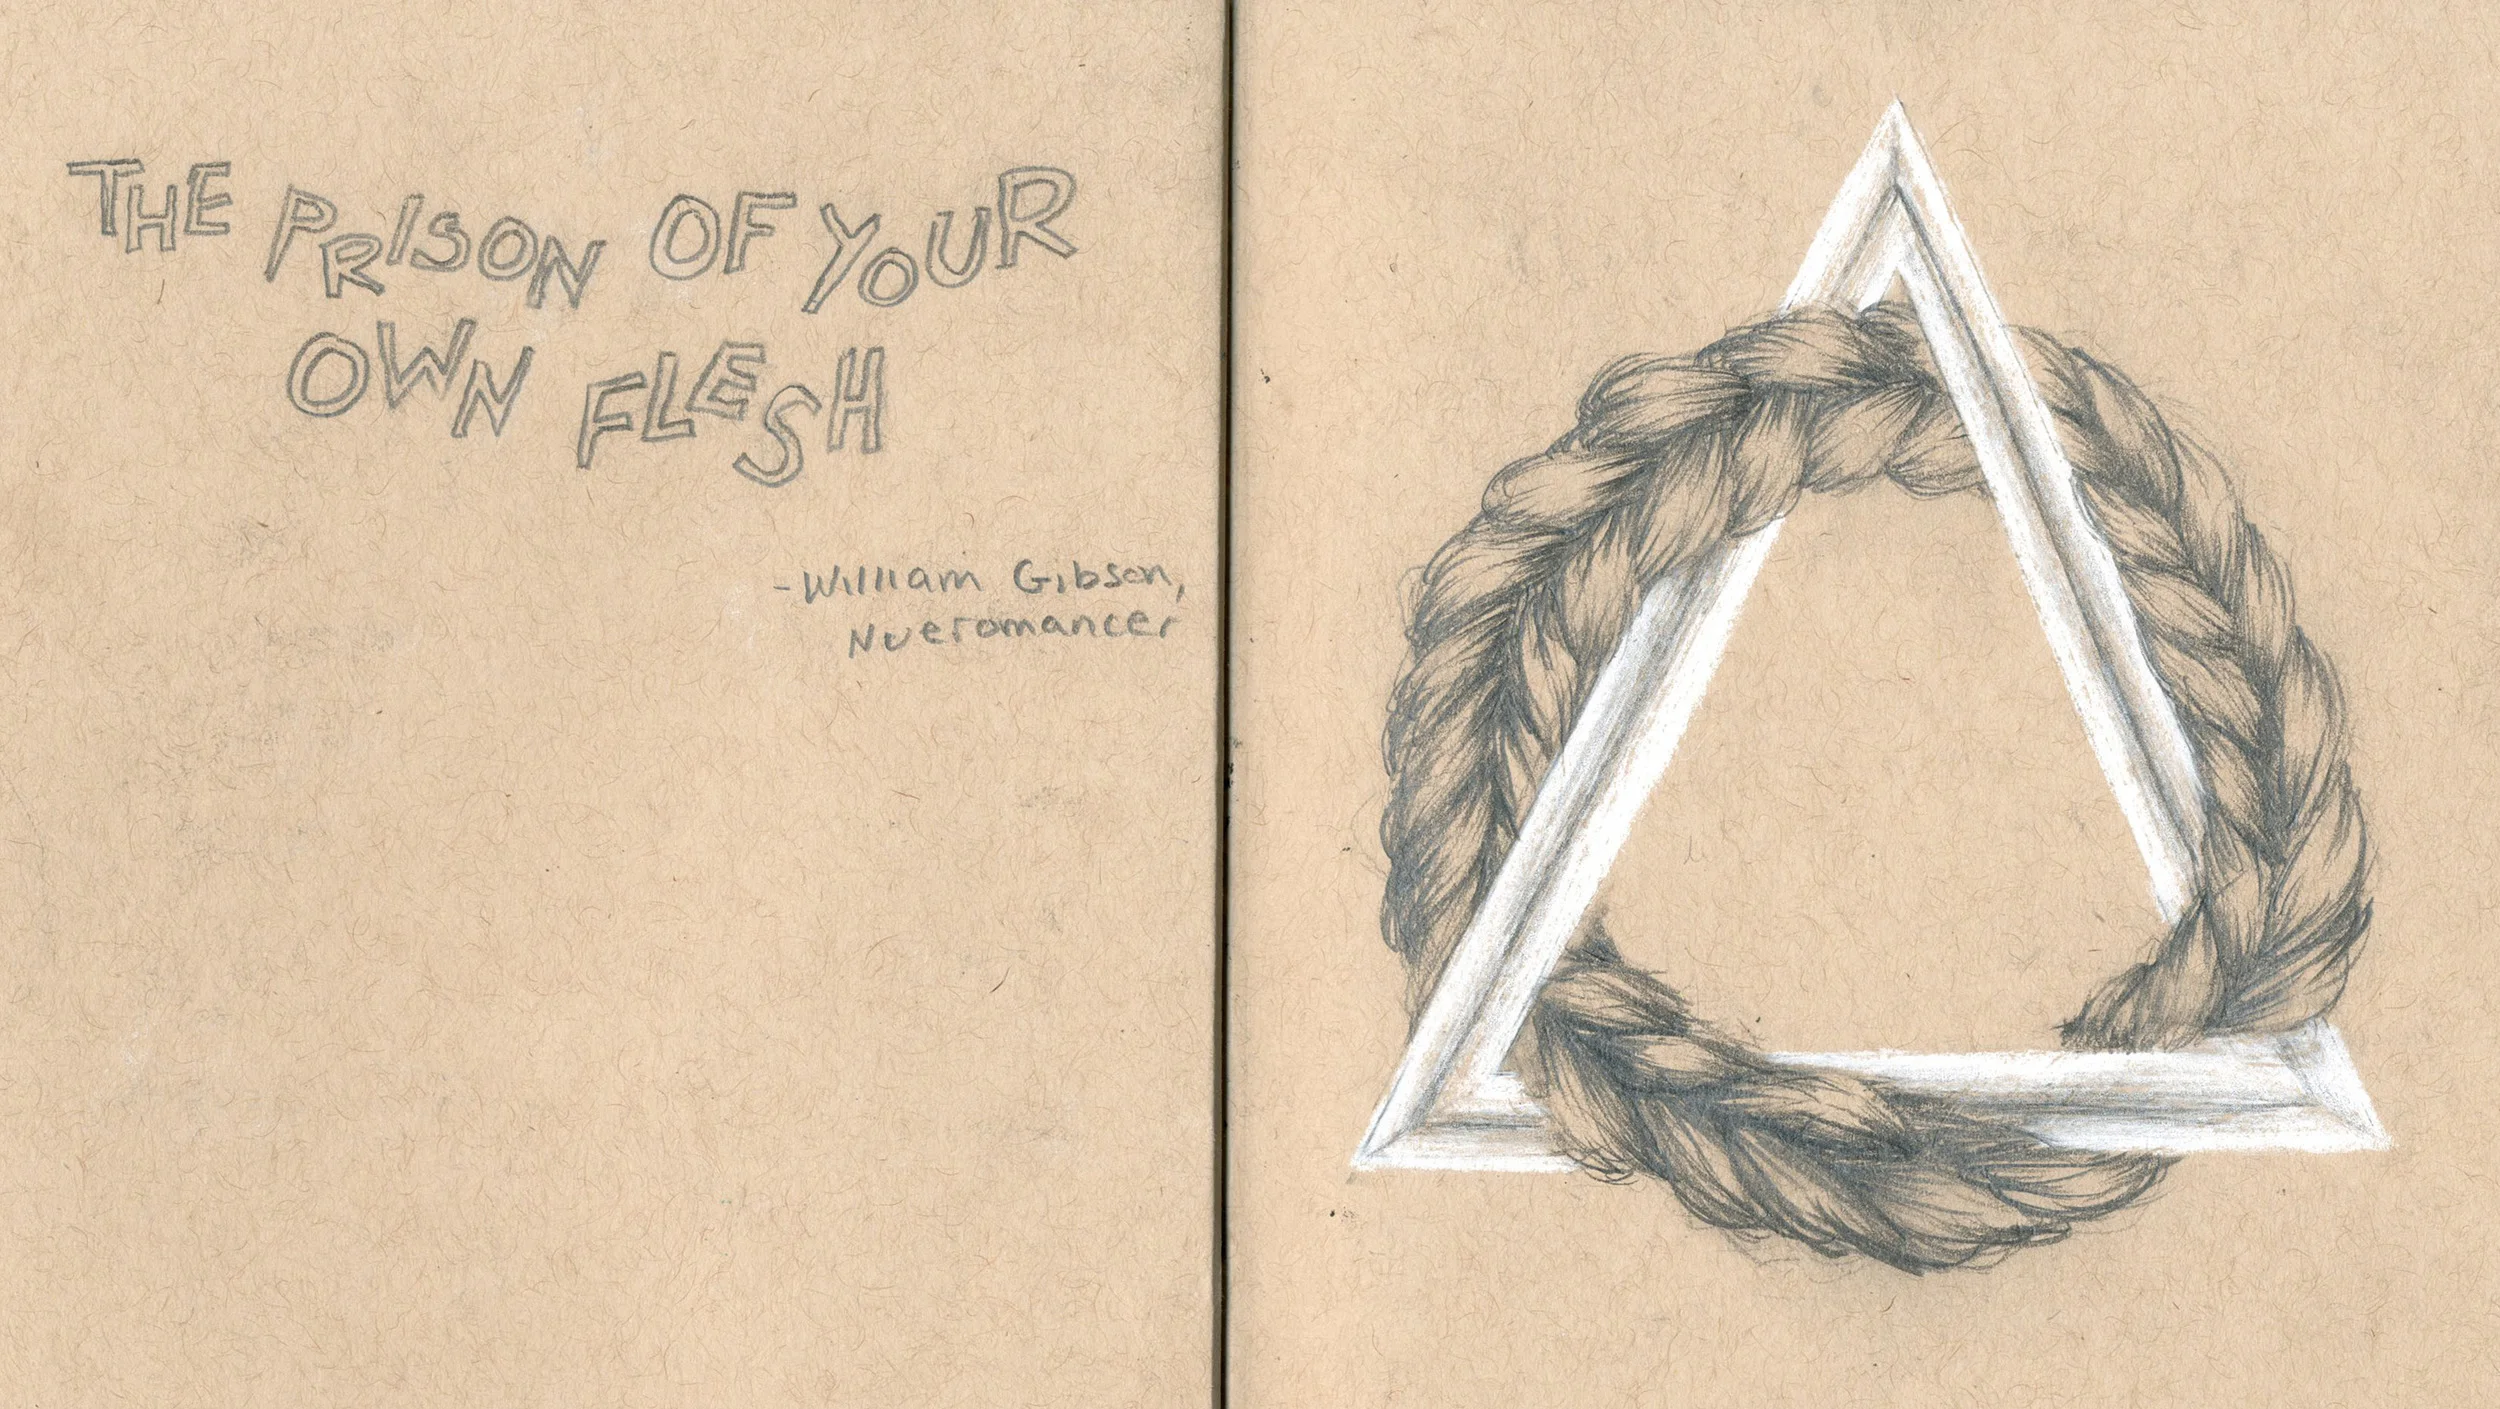 THE PRISON OF YOUR
OWN FLESH
-William Gibson,
Nueromancer